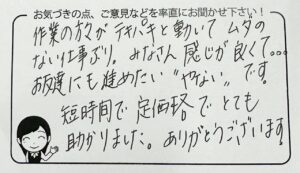 お気づきの点、ご意見などを率直にお聞かせ下さい!
作業の方がテキパキと動いてムダの
ない仕事ぶり。みなさん感じが良くて...
お友達にも進めたい "やない" です。
短時間で定価格でとても
助かりました。ありがとうございます